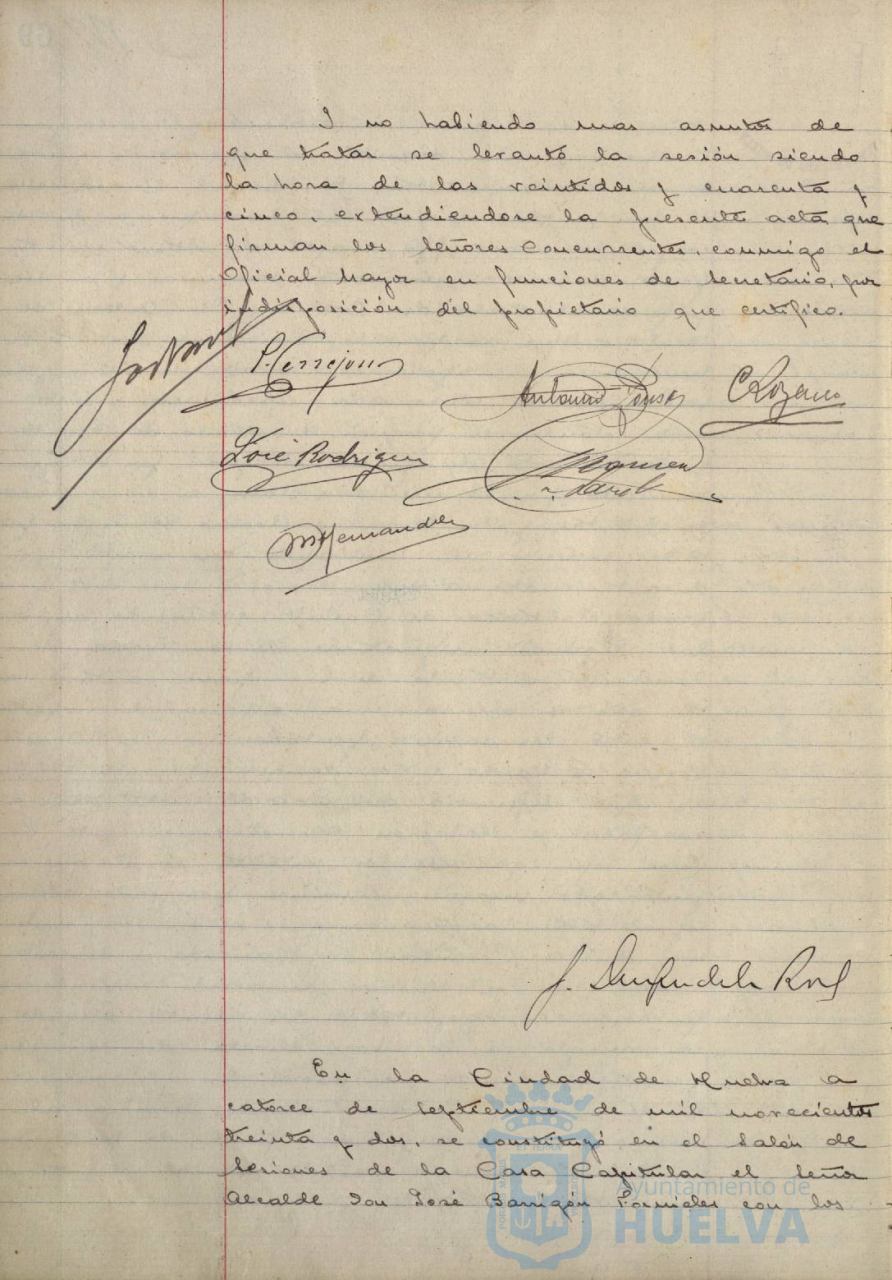 Y no habiendo mas asuntos de
que tratar se levantó la sesión siendo
la hora de las veintidos y cuarenta y
cinco, extendiendose la presente acta que
firman los Señores Concurrentes, conmigo el
Oficial Mayor en funciones de Secretario, por
indisposición del propietario que certifico.
P. Cerrejon
Antonio Ponse
C Lozano
José Rodriguez
M Hernandez
J.
En la Ciudad de Huelva a
catorce de Septiembre de mil novecientos
treinta y dos, se constituyó en el Salón de
Sesiones de la Casa Capitular el Señor
Alcalde Don José Barrigón Fornieles con los
Ayuntamiento de
HUELVA